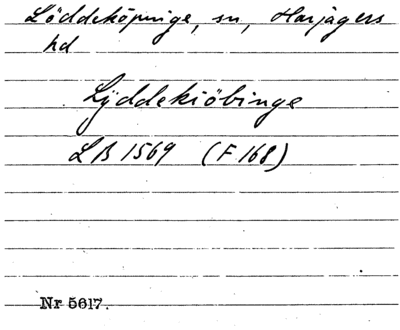 Löddeköpinge, sn, Harjagers
hd
Lÿddekiöbinge
LB 1569 (F 168)
Nr 5617.